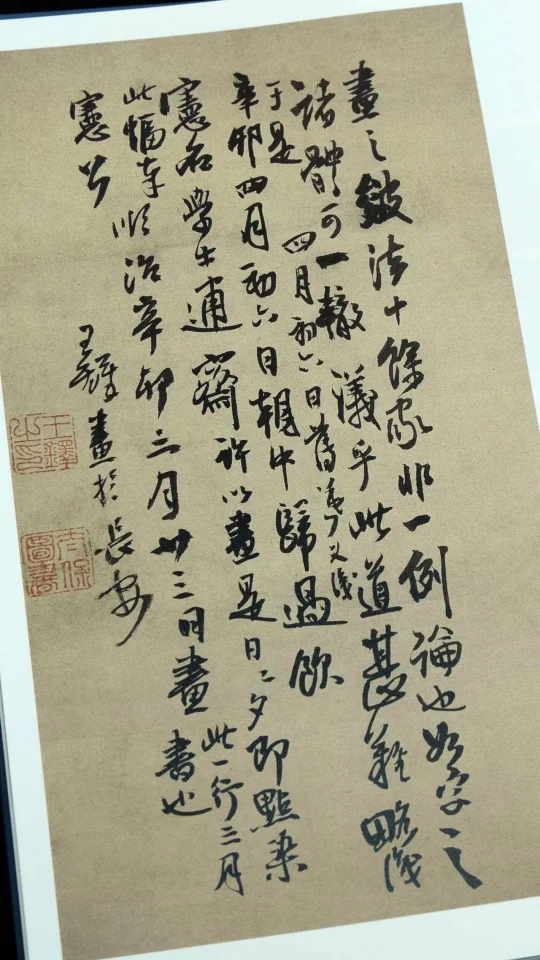 畫之皴法十餘家非一例論也如字之
諸體可一轍議乎此道甚難略識
于是四月初六日舊筆又識
辛卯四月初六日朝中歸過飲
憲石學士逋齋許以畫是日二夕即點染
此一行三月
此幅本順治辛卯三月廿三日畫書也
憲公
王鐸畫於長安
王鐸之印
太保圖書